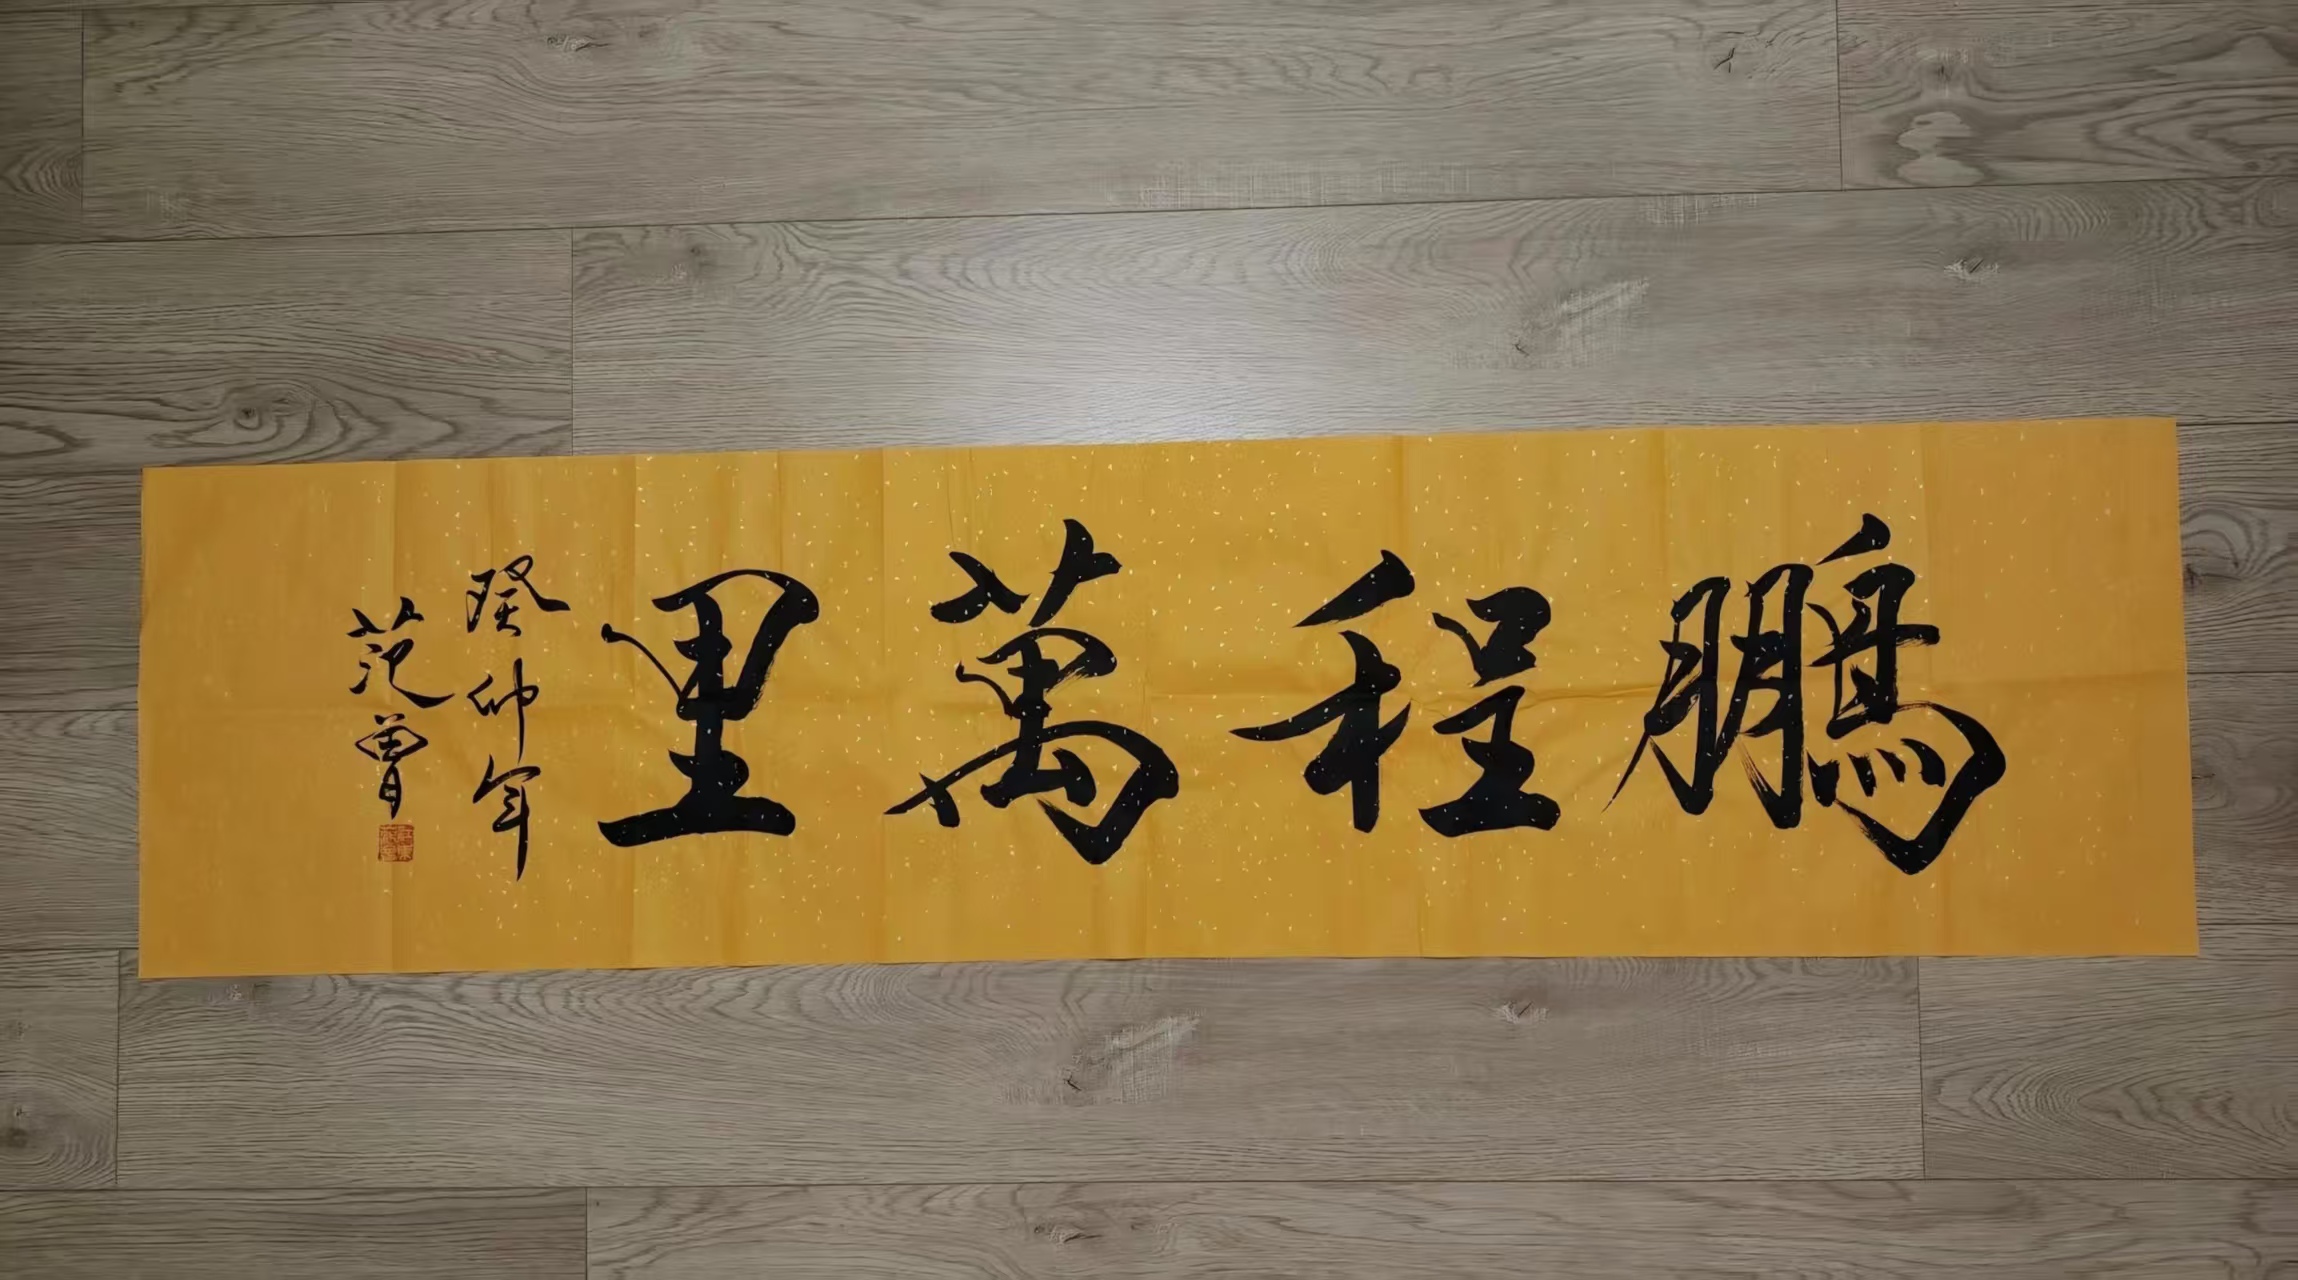 鵬程萬里
癸卯年
范曾